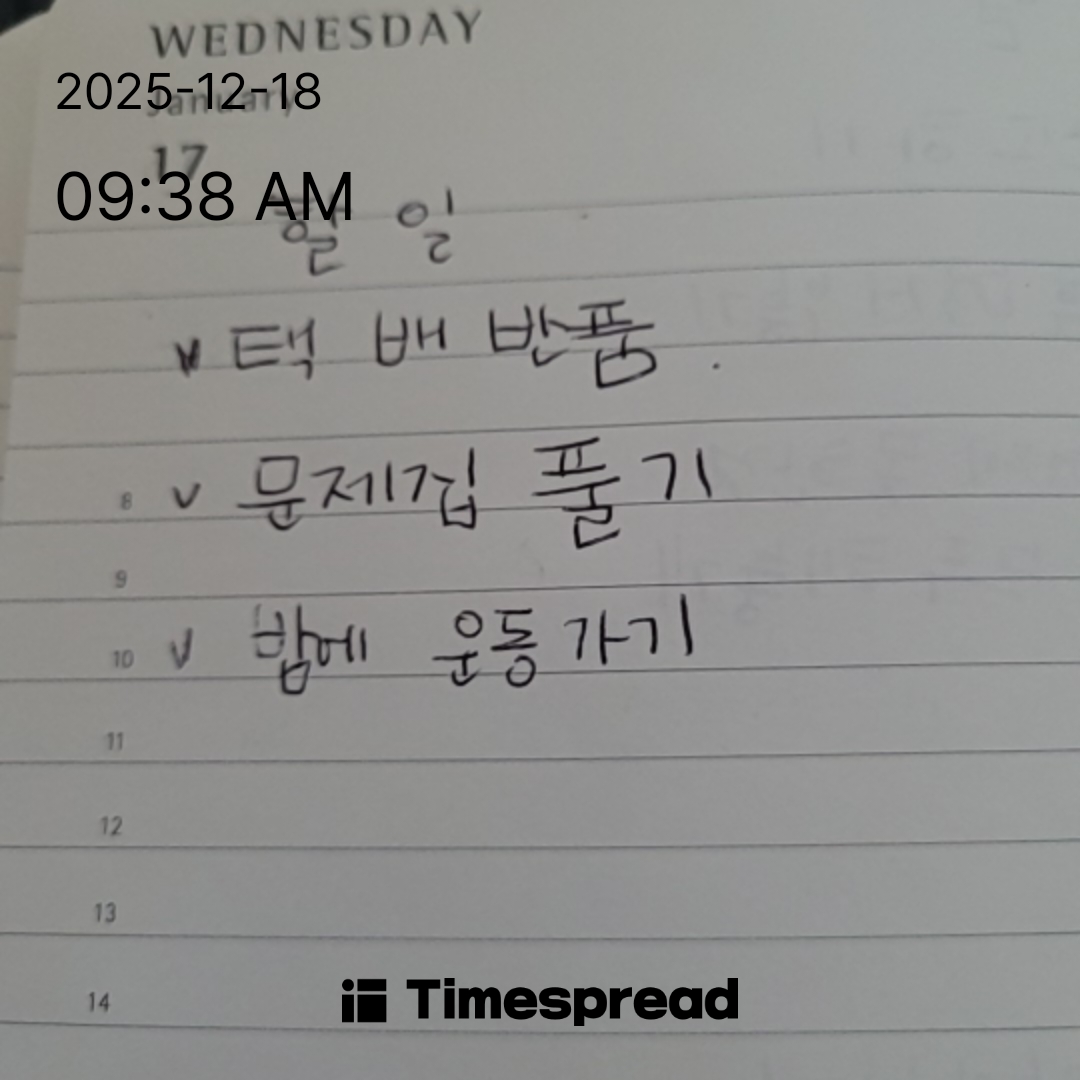 WEDNESDAY
2025-12-18
January
17
09:38 AM
할 일
v 택배 반품.
8 v 문제집 풀기
9
10 v 밤에 운동가기
11
12
13
14
Timespread